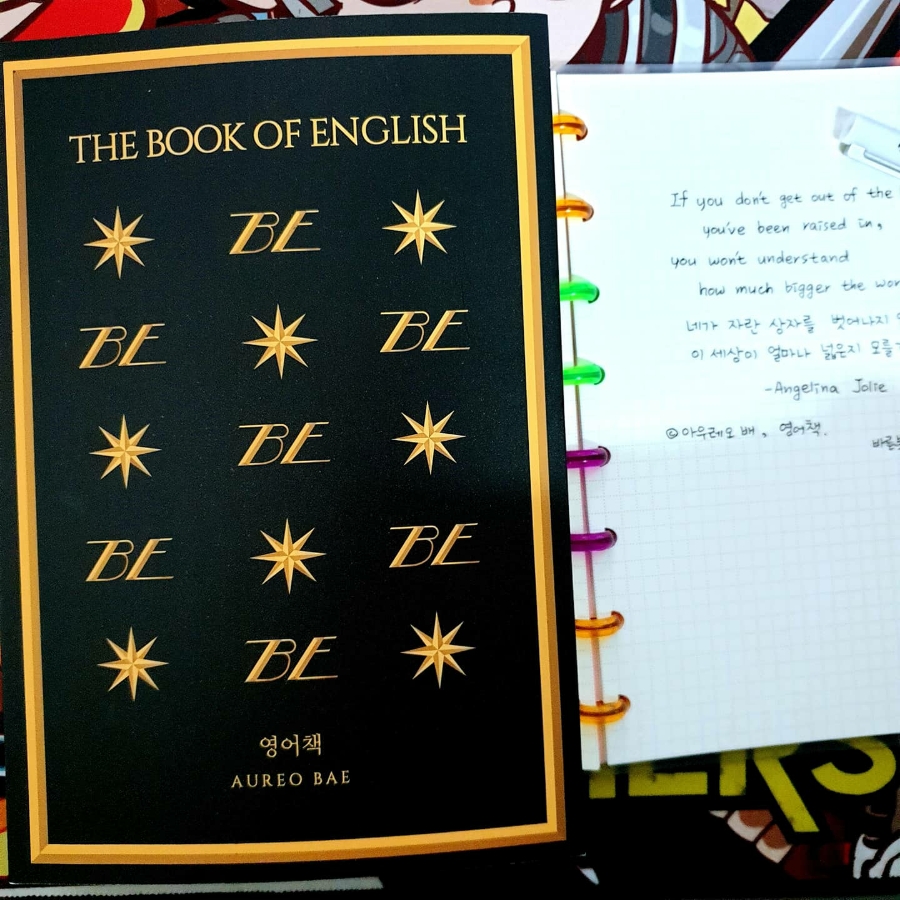 THE BOOK OF ENGLISH
BE
BE BE
BE
BE BE
BE
영어책
AUREO BAE
If you don't get out of the
you've been raised in,
you won't understand
how much bigger the
네가 자란 상자를 벗어나지
이 세상이 얼마나 넓은지
-Angelina Jolie
©아우레오 배, 영어책.